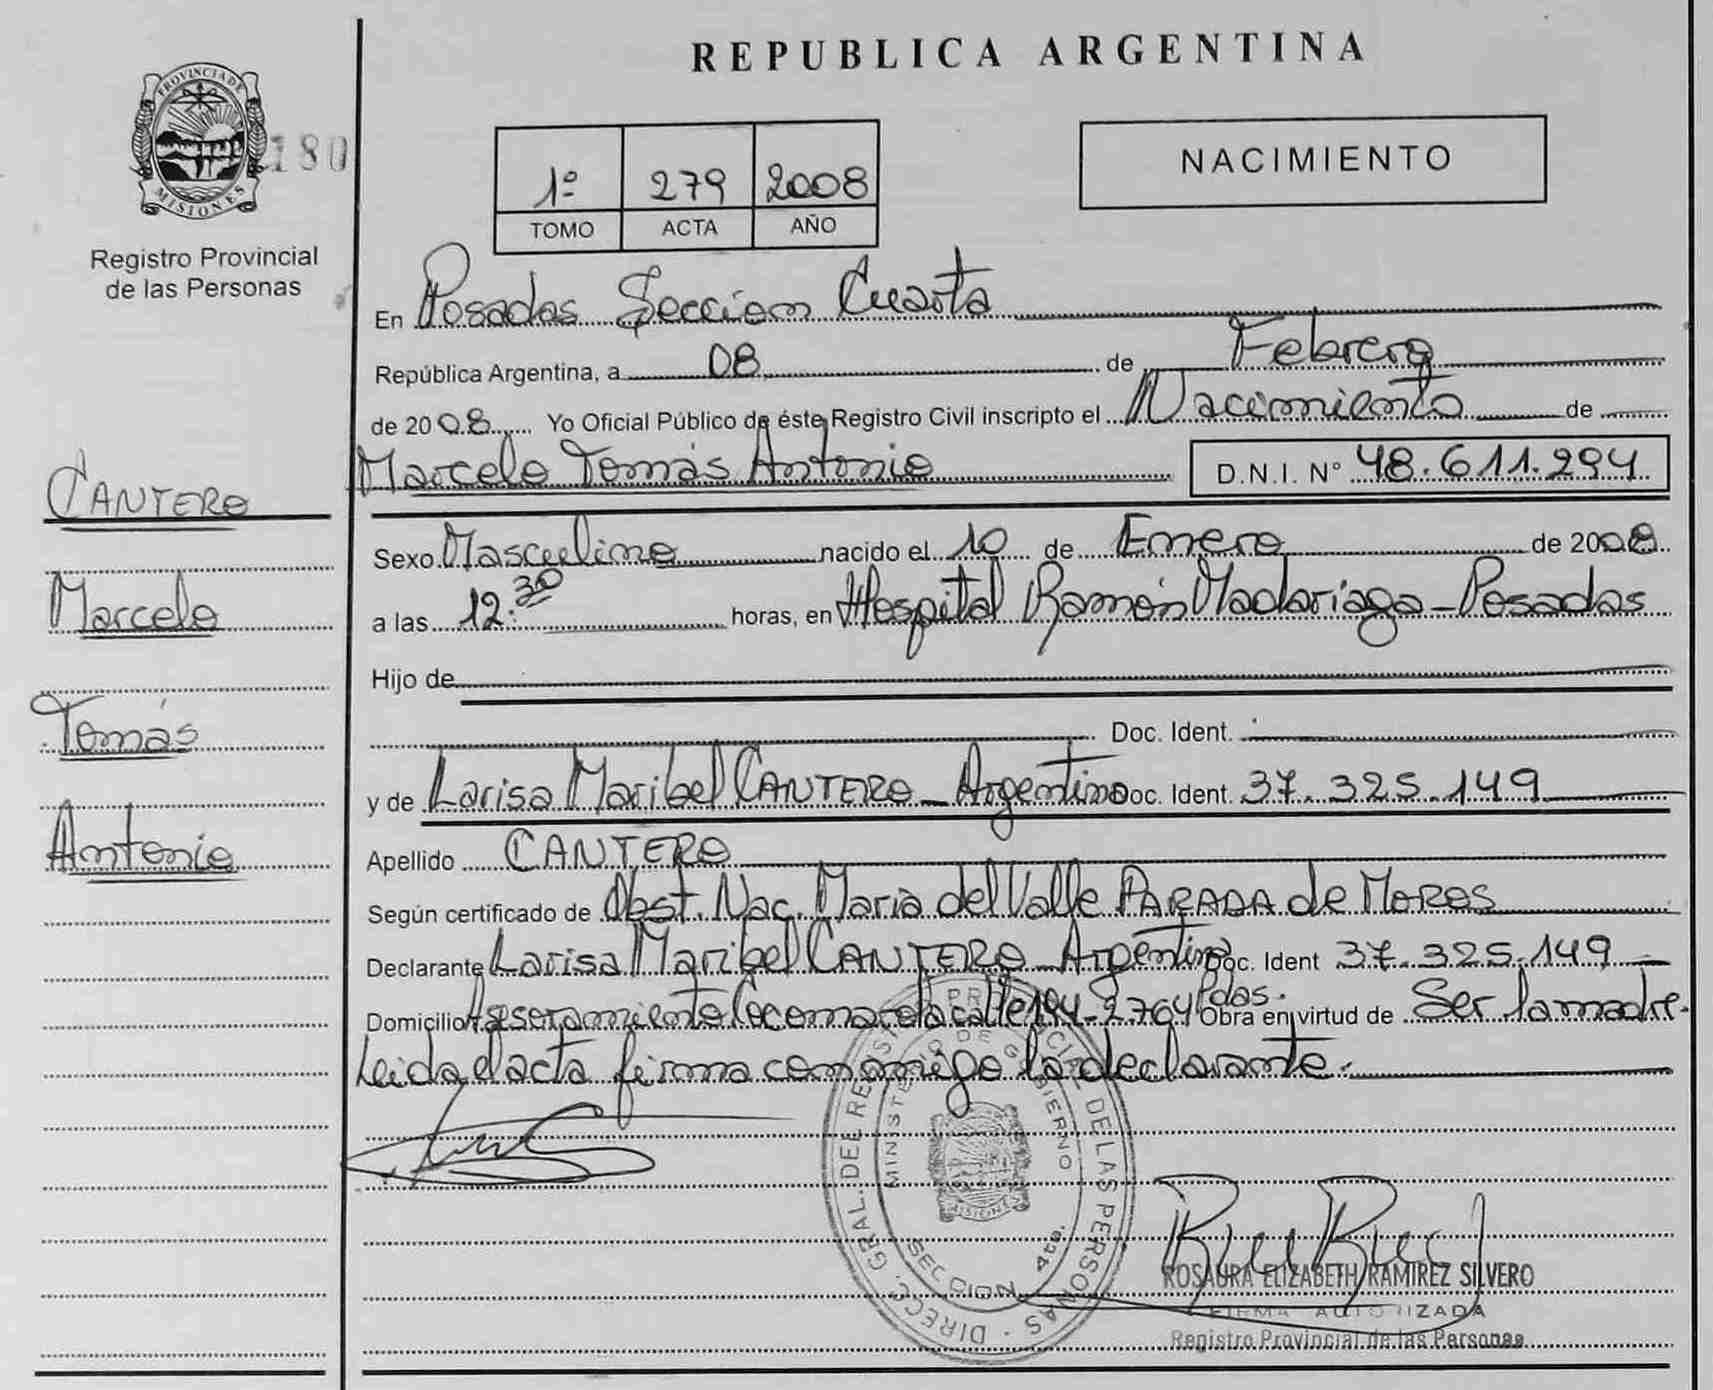 REPUBLICA ARGENTINA
PROVINCIA DE
MISIONES
180
Registro Provincial
de las Personas
1º 279 2008
TOMO ACTA AÑO
NACIMIENTO
En Posadas Seccion Cuarta
República Argentina, a 08 de Febrero
de 2008 Yo Oficial Público de éste Registro Civil inscripto el Nacimiento de
Marcelo Tomás Antonio D.N.I. Nº 48.611.294
CANTERO
Marcelo
Tomás
Antonio
Sexo Masculino nacido el 10 de Enero de 2008
a las 12:30 horas, en Hospital Ramón Madariaga - Posadas
Hijo de
Doc. Ident.
y de Larisa Maribel CANTERO - Argentina Doc. Ident. 37.325.149
Apellido CANTERO
Según certificado de Obst. Nac. Maria del Valle PARADA de MORES
Declarante Larisa Maribel CANTERO - Argentina Doc. Ident 37.325.149
Domicilio calle 194-2764 Pdas. Obra en virtud de Ser la madre.
Leida el acta firma conmigo la declarante.
DIRECC. GRAL. DEL REGISTRO PROVINCIAL DE LAS PERSONAS
MINISTERIO DE GOBIERNO
MISIONES
SECCION 4ta.
ROSAURA ELIZABETH RAMIREZ SILVERO
FIRMA AUTORIZADA
Registro Provincial de las Personas